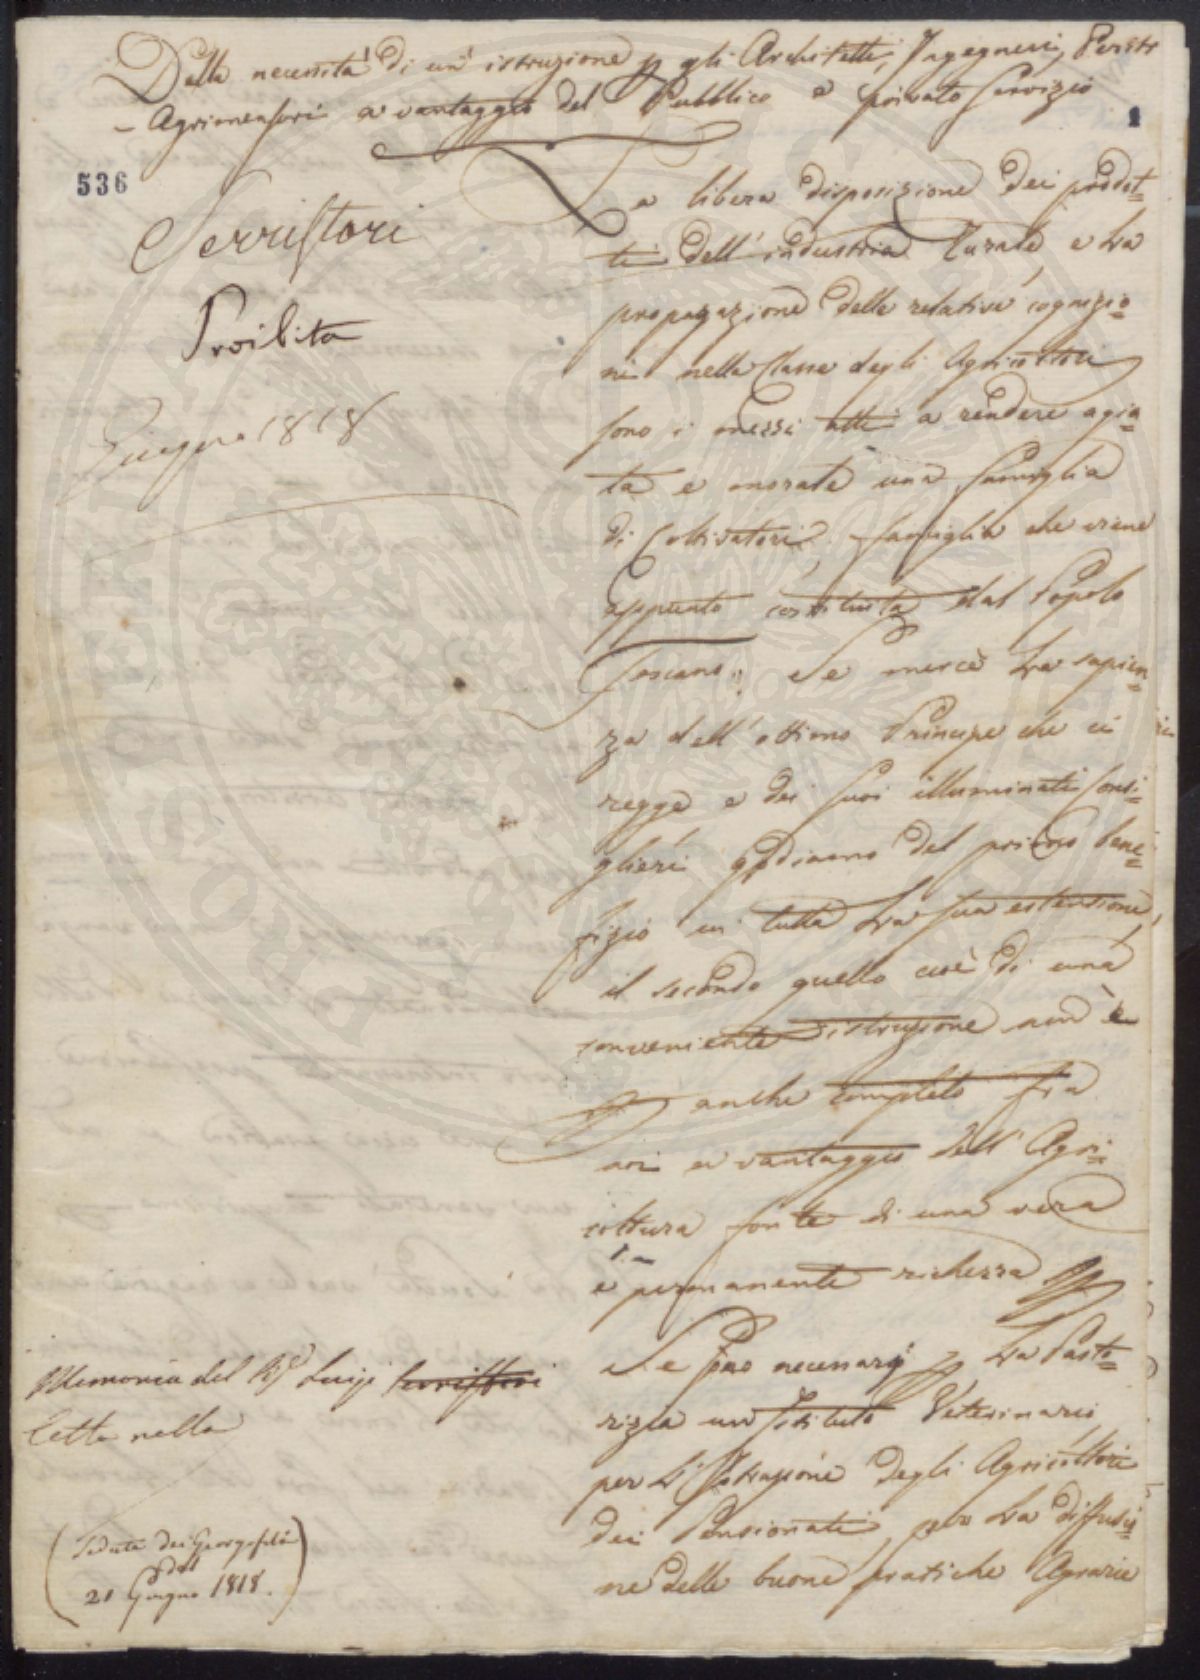 Della necessità di un' istruzione p gli Architetti, Ingegneri, Periti
- Agrimensori a vantaggio del Pubblico e privato servizio
1
536
Serristori
Proibita
Giugno 1818
La libera disposizione dei prodot=
ti dell'industria Rurale e La
propagazione delle relative cognizio=
ni nella Classe degli Agricoltori
sono i mezzi atti a rendere agia=
ta e morata una famiglia
di Coltivatori, famiglia che viene
appunto costituita dal Popolo
Toscano; e Se mercè La sapien=
za dell'ottimo Principe che ci
regge e dei suoi illuminati Consi=
glieri godiamo del primo bene=
fizio in tutta La sua estensione,
il secondo quello cioè di una
conveniente istruzione non è
p anche completo fra
noi a vantaggio dell'Agri=
coltura fonte di una vera
e permanente richezza
Se sono necessarj p La Pasto=
rizia un Istituto Veterinario
per L'Istruzione degli Agricoltori
dei Pensionati, per La diffusio=
ne delle buone pratiche Agrarie
Memoria del Luigi Serristori
letta nella
(Seduta dei Georgofili
del
21 Giugno 1818.)
ACCADEMIA DEI GEORGOFILI